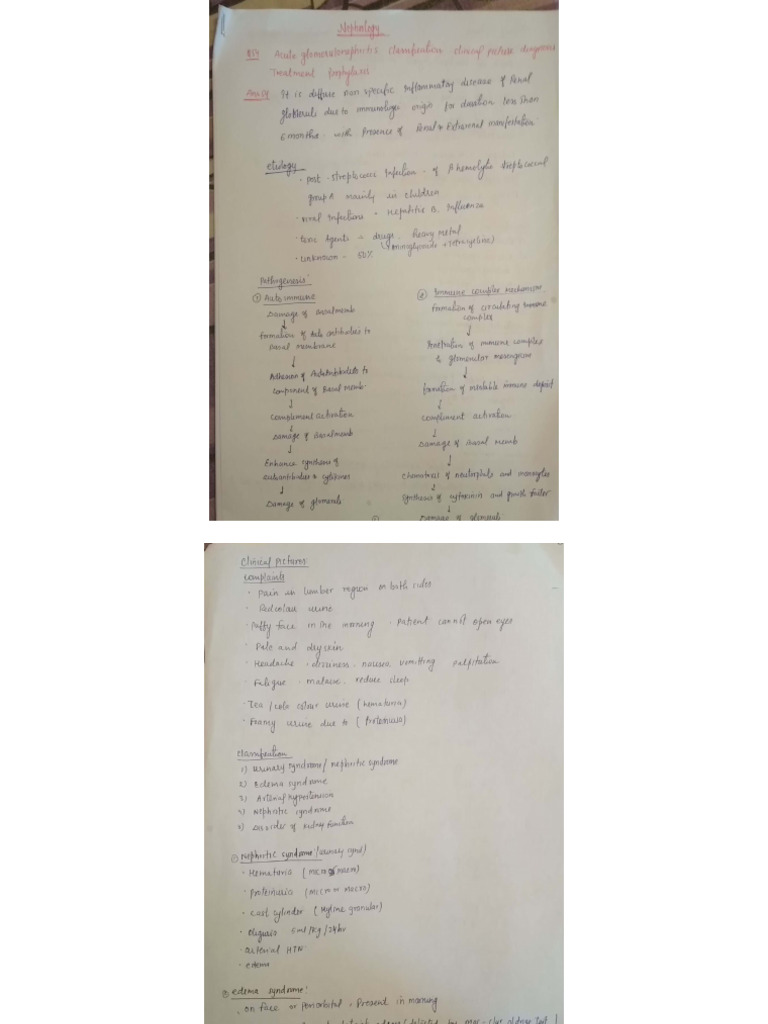 Nephrology
Q54 Acute glomerulonephritis classification clinical picture diagnosis
Treatment Prophylaxis
Ans 54 It is diffuse non specific inflammatory disease of Renal
glomeruli due to immunologic origin for duration less than
6 months with Presence of Renal & Extrarenal manifestation
etiology
• post-streptococci infection - of A hemolytic streptococcal
group A mainly in children
• viral infections - Hepatitis B, Influenza
• toxic Agents → drugs, heavy metal
(Aminoglycoside + tetracycline)
• unknown - 50%
Pathogenesis
① Autoimmune
Damage of basalmemb
↓
formation of Auto antibodies to
basal membrane
↓
Adhesion of Autoantibodies to
component of Basal memb
↓
complement activation
↓
Damage of basalmemb
↓
Enhance synthesis of
autoantibodies & cytokines
↓
Damage of glomeruli
② Immune complex mechanism
formation of circulating immune
complex
↓
Penetration of immune complex
& glomerular mesengium
↓
formation of insoluble immune deposit
↓
complement activation
↓
Damage of Basal memb
↓
chemotaxis of neutrophils and monocytes
↓
synthesis of cytokinin and growth factor
↓
Damage of glomeruli
Clinical Pictures
complaints
• Pain in lumber region on both sides
• Redcolour urine
• Puffy face in the morning • Patient cannot open eyes
• Pale and dry skin
• Headache • dizziness, nausea, vomitting palpitation
• Fatigue • malaise, reduce sleep
• Tea / cola colour urine (hematuria)
• Foamy urine due to (Proteinuria)
Classification
1) urinary syndrome / nephritic syndrome
2) Edema syndrome
3) Arterial hypertension
4) Nephrotic syndrome
5) Disorder of kidney function
① Nephritic syndrome (urinary synd)
• Hematuria (micro macro)
• proteinuria (micro or macro)
• cast cylinder (hyline granular)
• oliguria 5ml/kg/24hr
• arterial HTN
• edema
② edema syndrome:
, on face or periorbital, Present in morning